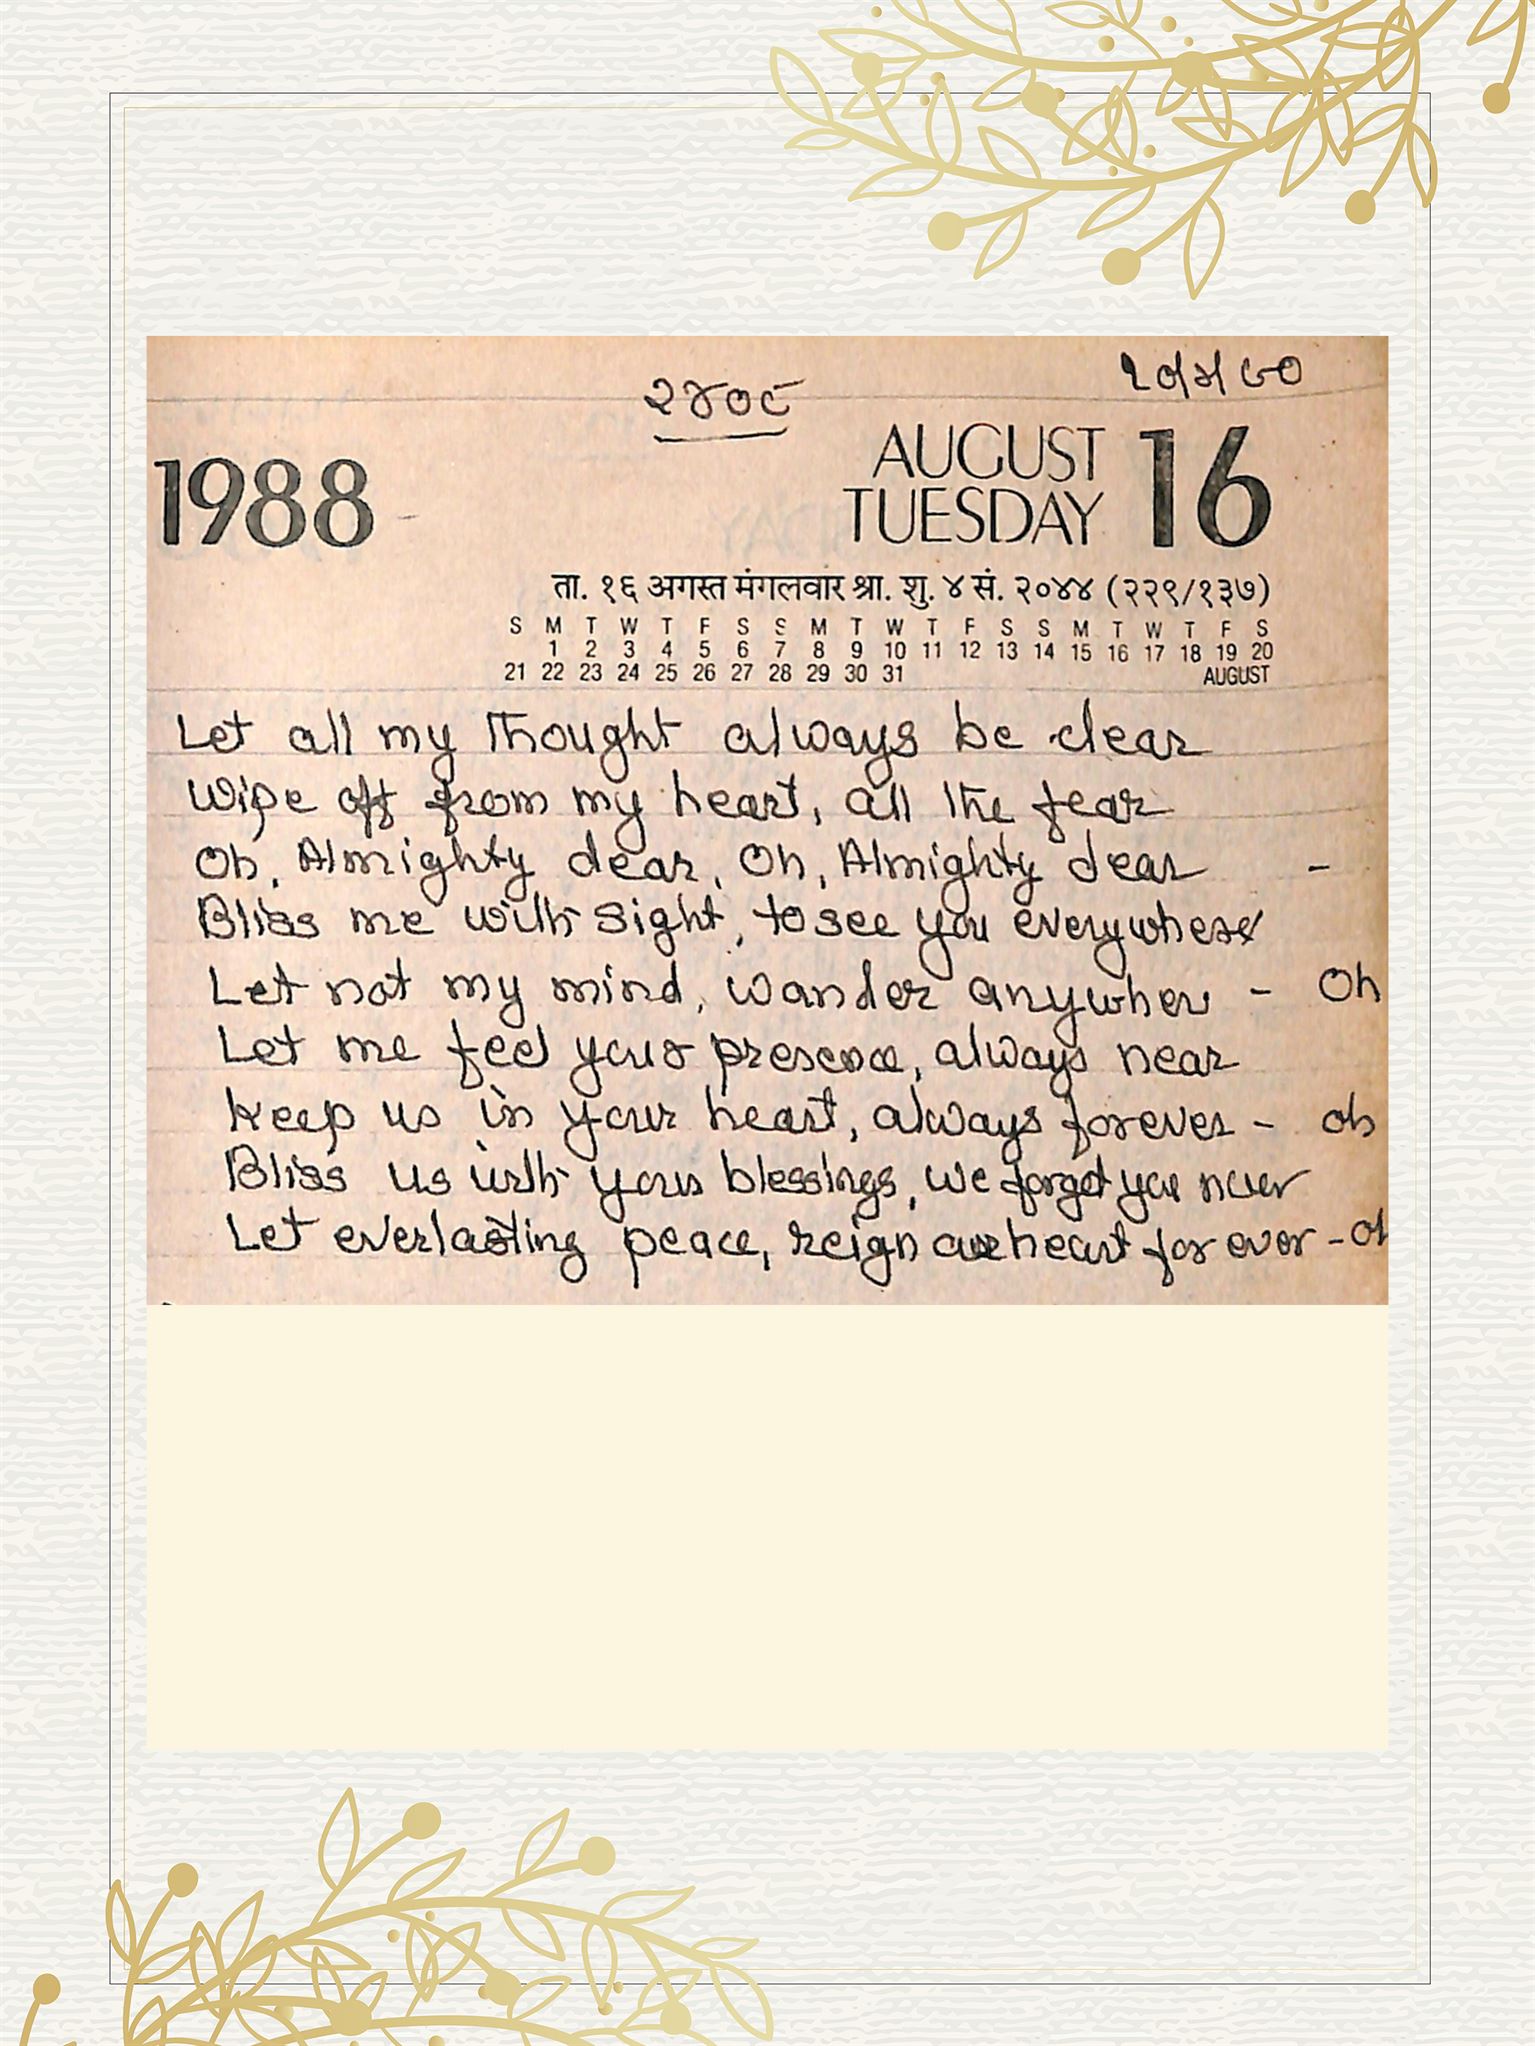 ૨૪૦૮
1988
AUGUST 16
TUESDAY
ता. १६ अगस्त मंगलवार श्रा. शु. ४ सं. २०४४ (२२९/१३७)
S M T W T F S S M T W T F S S M T W T F S
1 2 3 4 5 6 7 8 9 10 11 12 13 14 15 16 17 18 19 20
21 22 23 24 25 26 27 28 29 30 31 AUGUST
Let all my thought always be clear
Wipe off from my heart, all the fear
Oh, Almighty dear, Oh, Almighty dear -
Bliss me with sight, to see you everywhere
Let not my mind, wander anywher - Oh
Let me feel your presence, always near
Keep us in your heart, always forever - oh
Bliss us with your blessings, we forget you never
Let everlasting peace, reign our heart for ever - oh